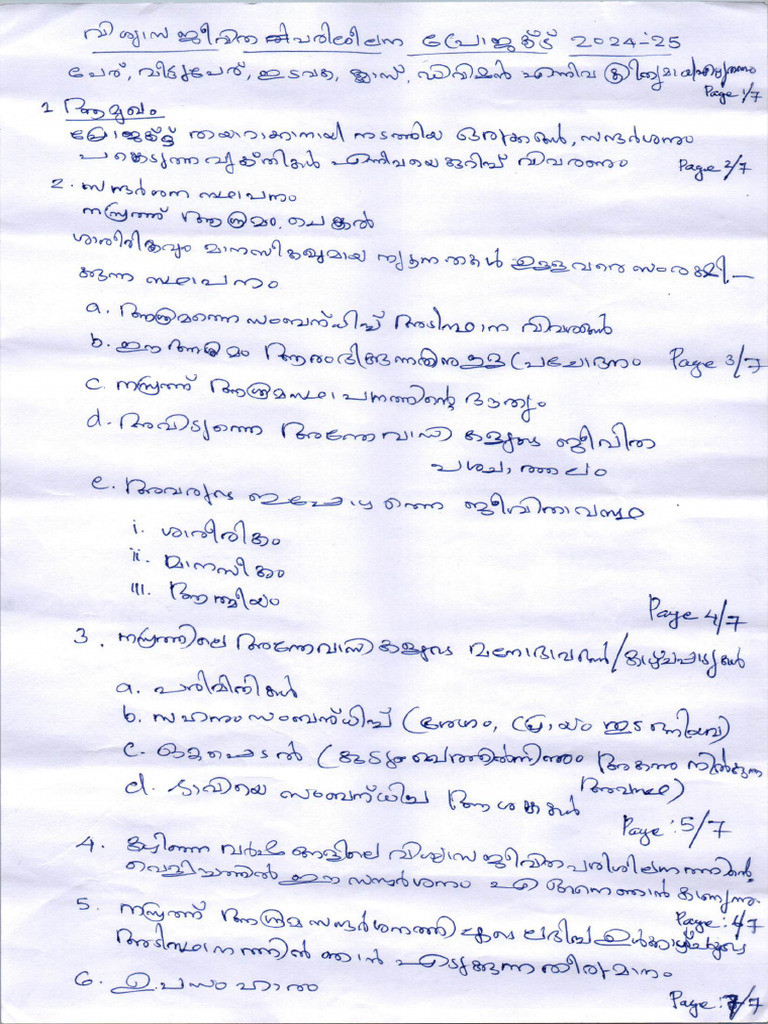 വിശ്വാസ ജീവിത പരിശീലന പ്രോജക്ട് 2024-25
പേര്, വീട്ടുപേര്, ഇടവക, ക്ലാസ്, ഡിവിഷൻ എന്നിവ
Page 1/7
1 ആമുഖം
പ്രോജക്ട് തയ്യാറാക്കാനായി നടത്തിയ ഒരുക്കങ്ങൾ, സന്ദർശനം
പങ്കെടുത്ത വ്യക്തികൾ എന്നിവയെക്കുറിച്ച് വിവരണം Page 2/7
2. സന്ദർശന സ്ഥാപനം
നസ്രത്ത് ആശ്രമം, ചെങ്കൽ
ശാരീരികവും മാനസികവുമായ ന്യൂനതകൾ ഉള്ളവരെ സംരക്ഷി-
ക്കുന്ന സ്ഥാപനം
a. ആശ്രമത്തെ സംബന്ധിച്ച് അടിസ്ഥാന വിവരങ്ങൾ
b. ഈ ആശ്രമം ആരംഭിക്കുന്നതിനുള്ള പ്രചോദനം Page 3/7
c. നസ്രത്ത് ആശ്രമസ്ഥാപനത്തിന്റെ ദൗത്യം
d. അവിടുത്തെ അന്തേവാസികളുടെ ജീവിത
പശ്ചാത്തലം
e. അവരുടെ ഇപ്പോഴത്തെ ജീവിതാവസ്ഥ
i. ശാരീരികം
ii. മാനസീകം
iii. ആത്മീയം
Page 4/7
3. നസ്രത്തിലെ അന്തേവാസികളുടെ മനോഭാവങ്ങൾ/കാഴ്ചപ്പാടുകൾ
a. പരിമിതികൾ
b. സഹനം സംബന്ധിച്ച് (രോഗം, പ്രായം തുടങ്ങിയവ)
c. ഒറ്റപ്പെടൽ (കുടുംബത്തിൽനിന്നും അകന്നു നിൽക്കുന്ന
അവസ്ഥ)
d. ഭാവിയെ സംബന്ധിച്ച ആശങ്കകൾ
Page: 5/7
4. കഴിഞ്ഞ വർഷങ്ങളിലെ വിശ്വാസ ജീവിത പരിശീലനത്തിന്റെ
വെളിച്ചത്തിൽ ഈ സന്ദർശനം എങ്ങനെ ഞാൻ കാണുന്നു.
Page: /7
5. നസ്രത്ത് ആശ്രമ സന്ദർശനത്തിലൂടെ ലഭിച്ച ഉൾക്കാഴ്ചയുടെ
അടിസ്ഥാനത്തിൽ ഞാൻ എടുക്കുന്ന തീരുമാനം
6. ഉപസംഹാരം
Page: 7/7